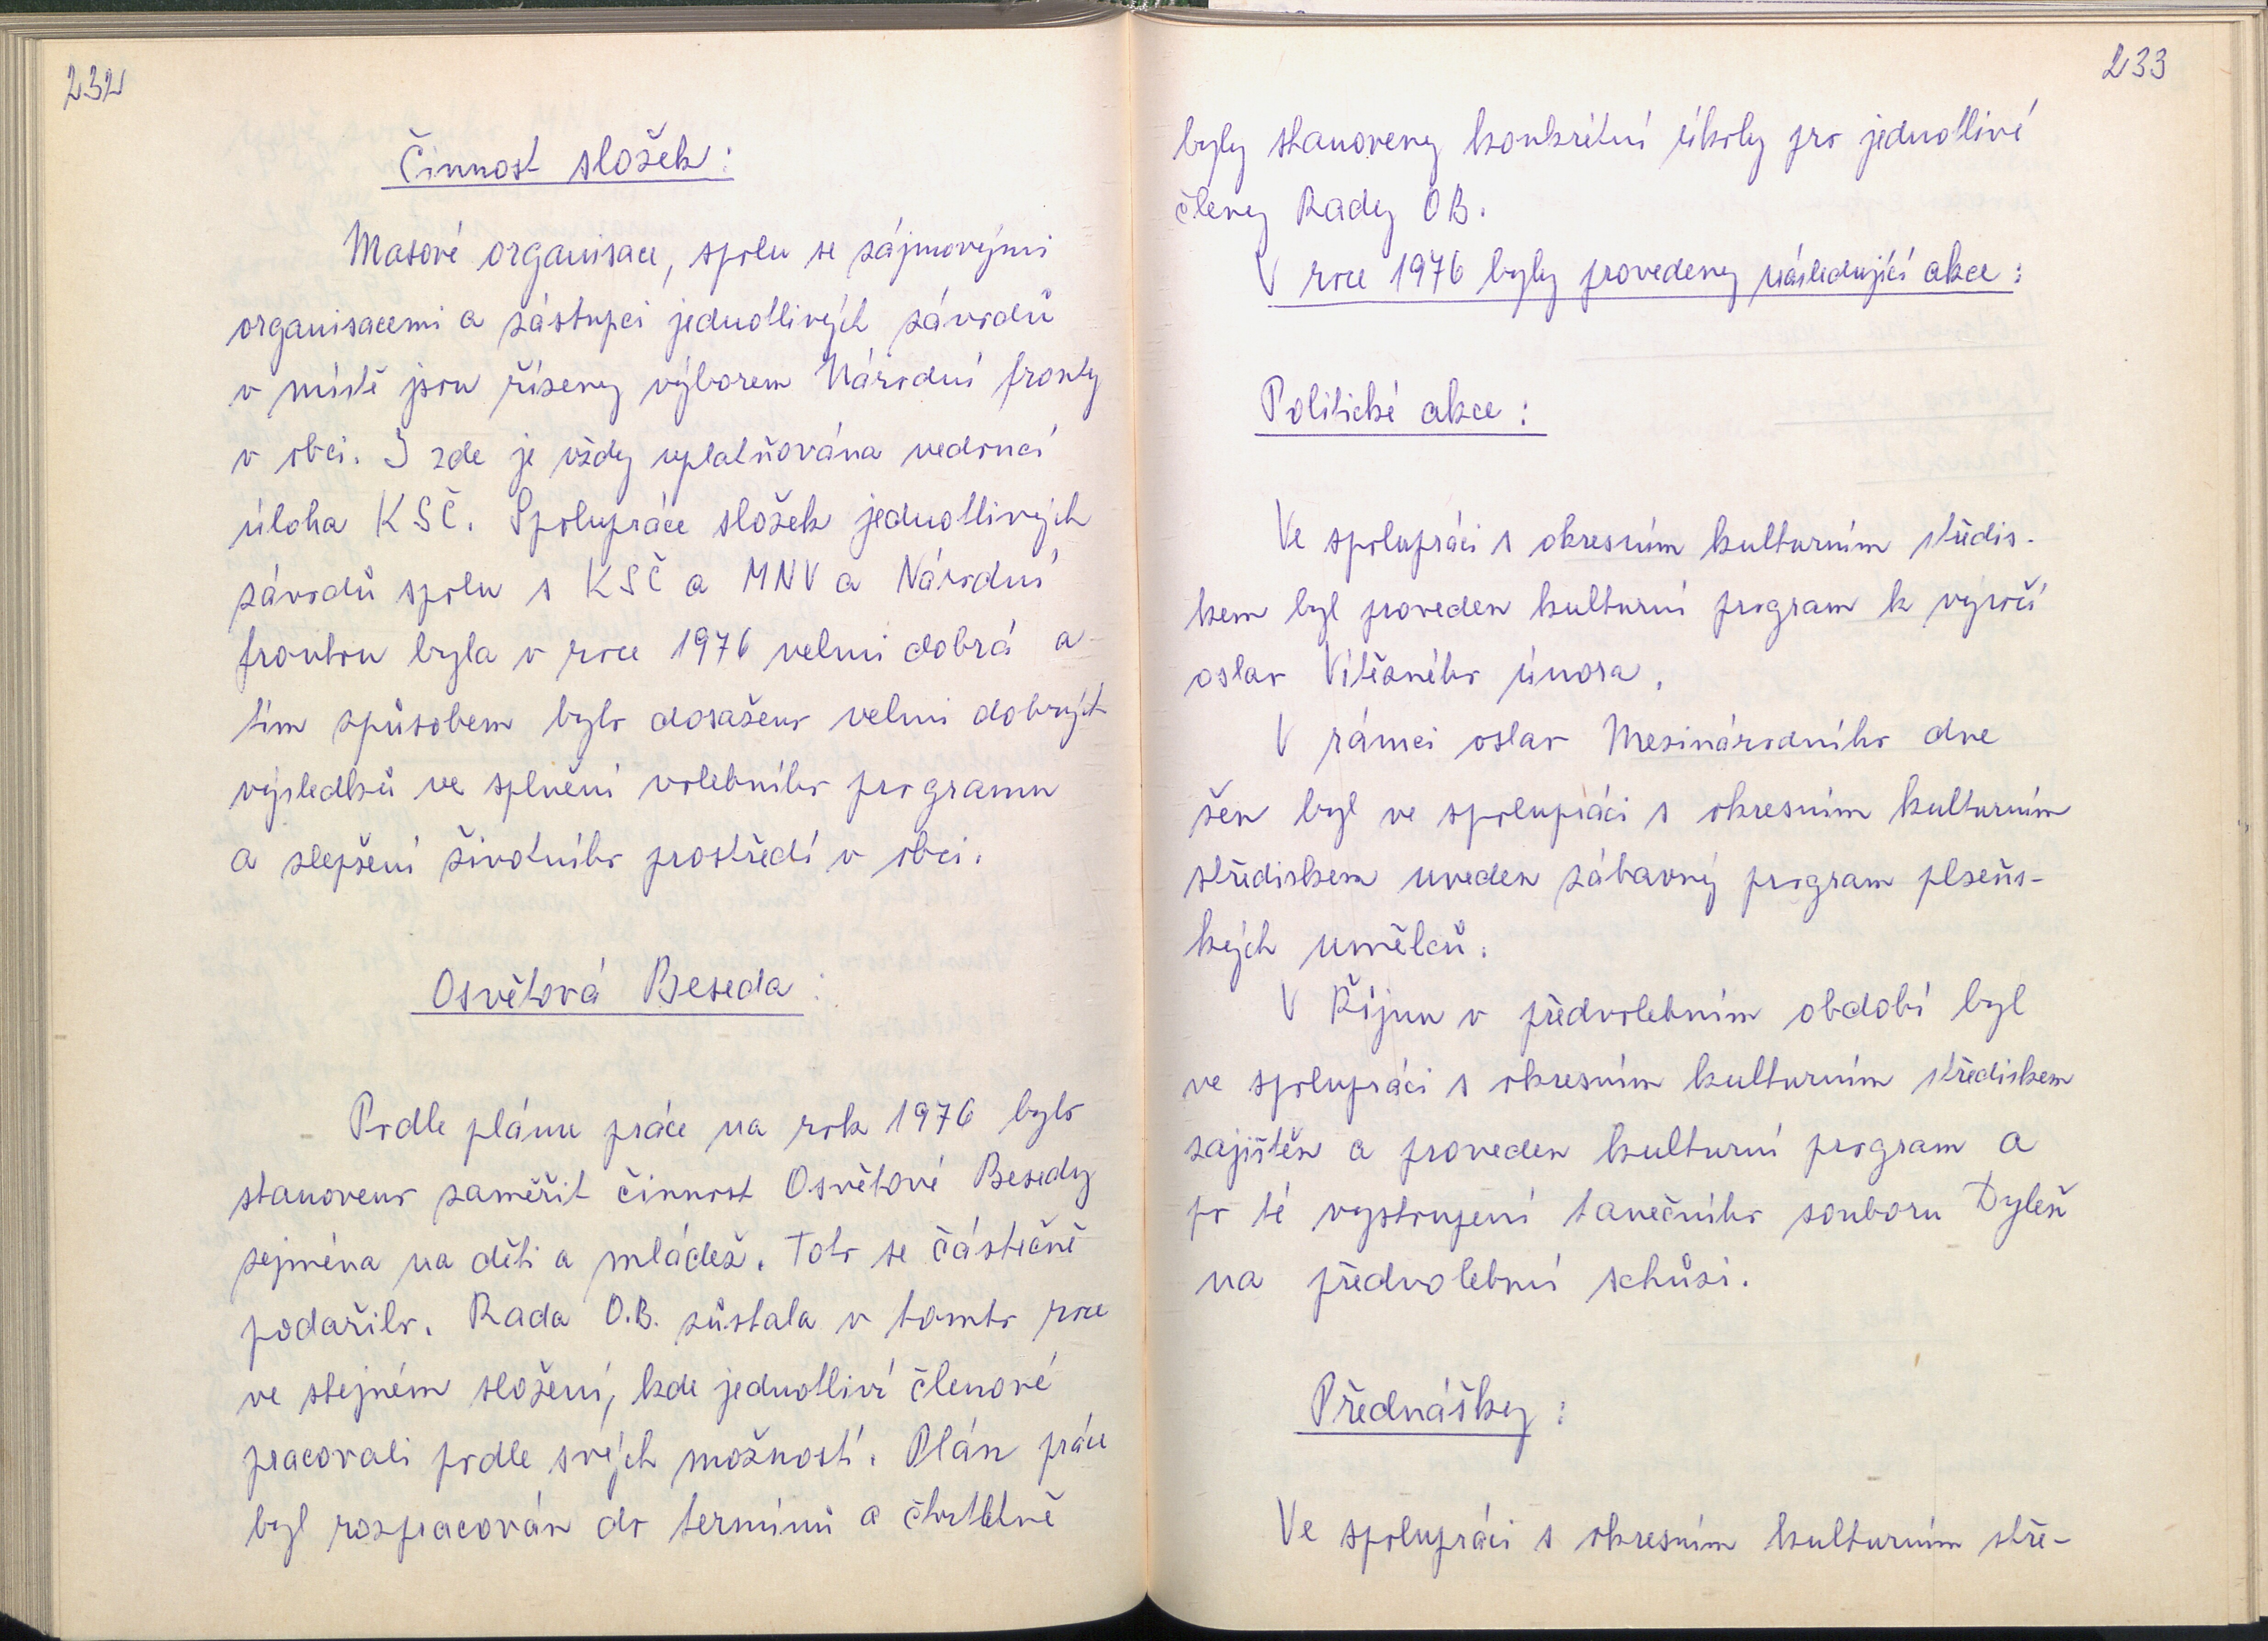 232
Činnost složek:
Masové organisace, spolu se zájmovými
organisacemi a zástupci jednotlivých závodů
v místě jsou řízeny výborem Národní fronty
v obci. I zde je vždy uplatňována vedoucí
úloha KSČ. Spolupráce složek jednotlivých
závodů spolu s KSČ a MNV a Národní
frontou byla v roce 1976 velmi dobrá a
tím způsobem bylo dosaženo velmi dobrých
výsledků ve splnění volebního programu
a zlepšení životního prostředí v obci.
Osvětová Beseda:
Podle plánu práce na rok 1976 bylo
stanoveno zaměřit činnost Osvětové Besedy
zejména na děti a mládež. Toto se částečně
podařilo. Rada O.B. zůstala v tomto roce
ve stejném složení, kde jednotliví členové
pracovali podle svých možností. Plán práce
byl rozpracován do termínů a čtvrtletně
233
byly stanoveny konkrétní úkoly pro jednotlivé
členy Rady OB.
V roce 1976 byly provedeny následující akce:
Politické akce:
Ve spolupráci s okresním kulturním středis-
kem byl proveden kulturní program k výročí
oslav Vítězného února.
V rámci oslav Mezinárodního dne
žen byl ve spolupráci s okresním kulturním
střediskem uveden zábavný program plzeňs-
kých umělců.
V Říjnu v předvolebním období byl
ve spolupráci s okresním kulturním střediskem
zajištěn a proveden kulturní program a
po té vystoupení tanečního souboru Dyleň
na předvolební schůzi.
Přednášky:
Ve spolupráci s okresním kulturním stře-